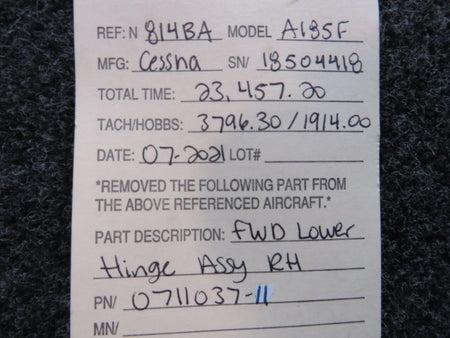 REF: N 814BA MODEL A185F
MFG: Cessna SN/ 18504418
TOTAL TIME: 23,457.20
TACH/HOBBS: 3796.30/1914.00
DATE: 07-2021 LOT#
*REMOVED THE FOLLOWING PART FROM
THE ABOVE REFERENCED AIRCRAFT.*
PART DESCRIPTION: FWD Lower
Hinge Assy RH
PN/ 0711037-11
MN/